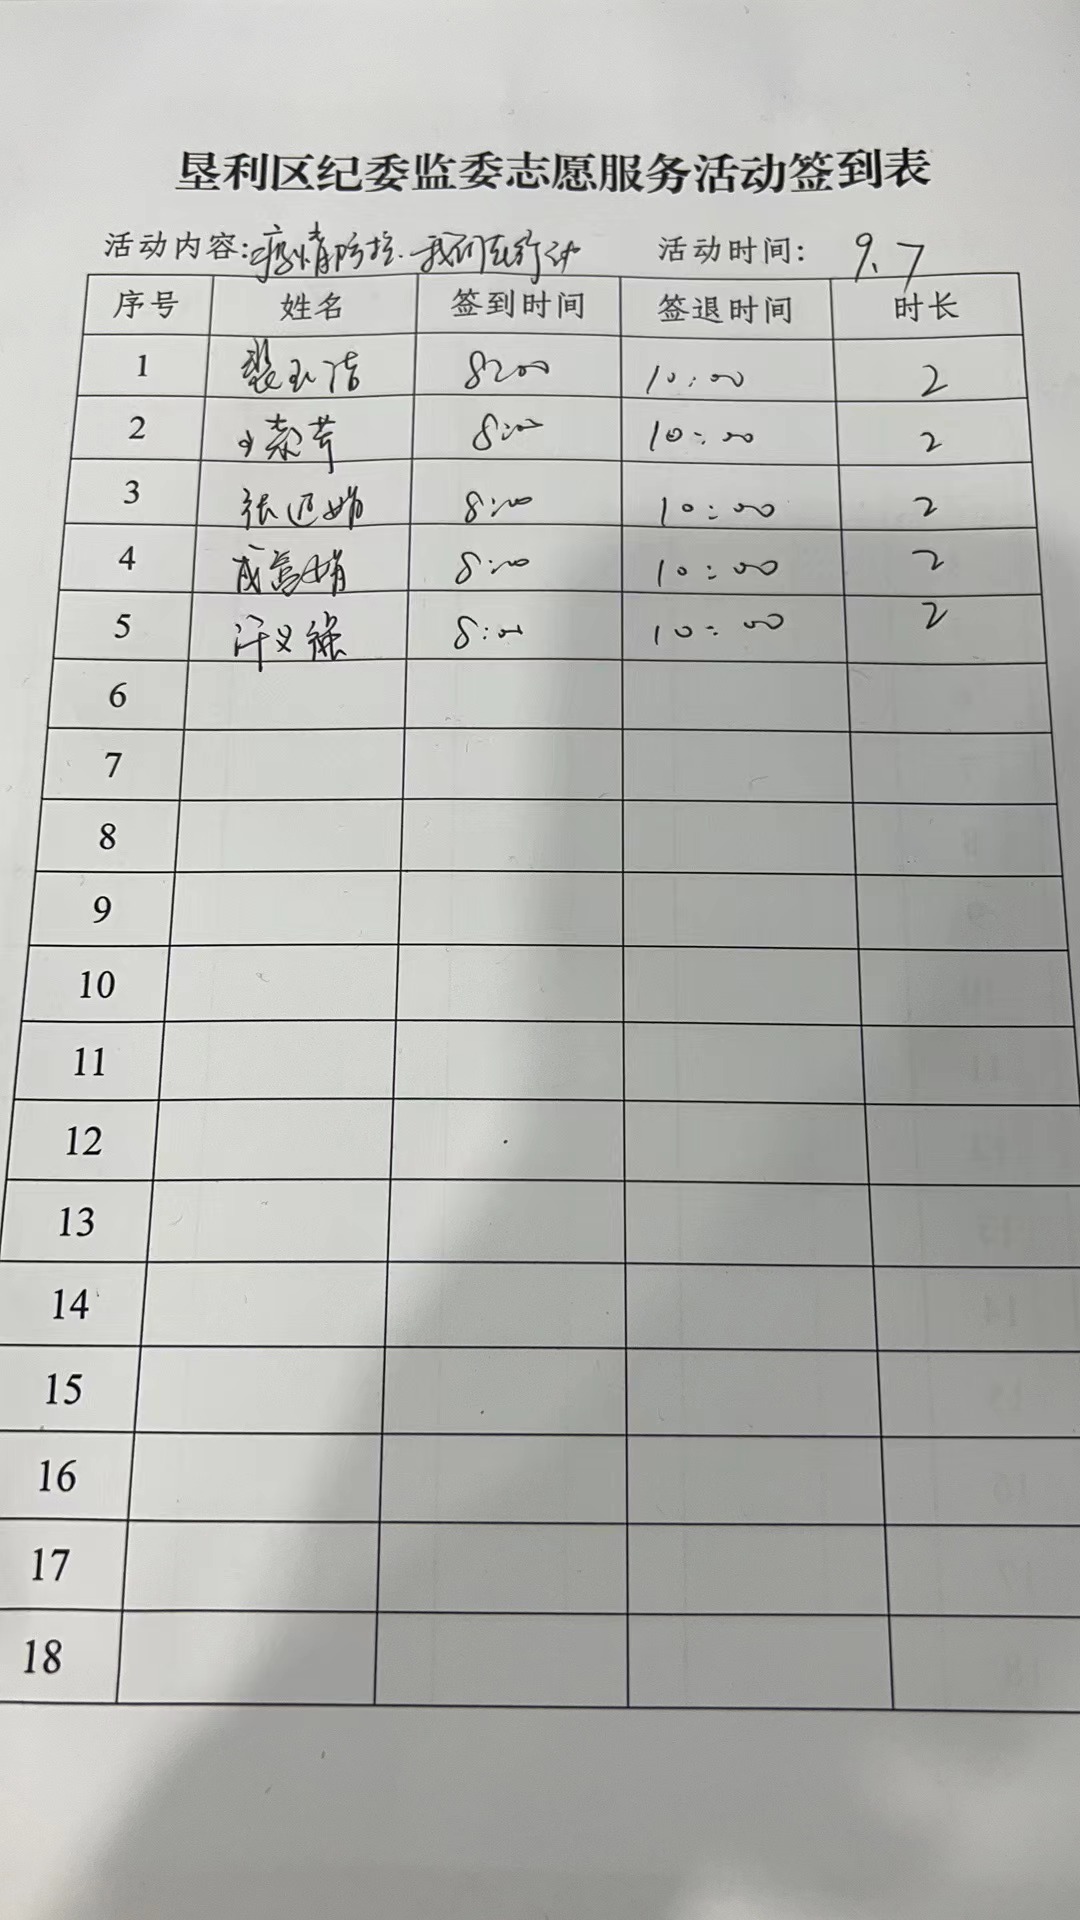 垦利区纪委监委志愿服务活动签到表
活动内容:疫情防控.我们在行动 活动时间: 9.7
序号 姓名 签到时间 签退时间 时长
1 8:00 10:00 2
2 8:00 10:00 2
3 张迎娟 8:00 10:00 2
4 成富娟 8:00 10:00 2
5 汗义强 8:00 10:00 2
6
7
8
9
10
11
12
13
14
15
16
17
18